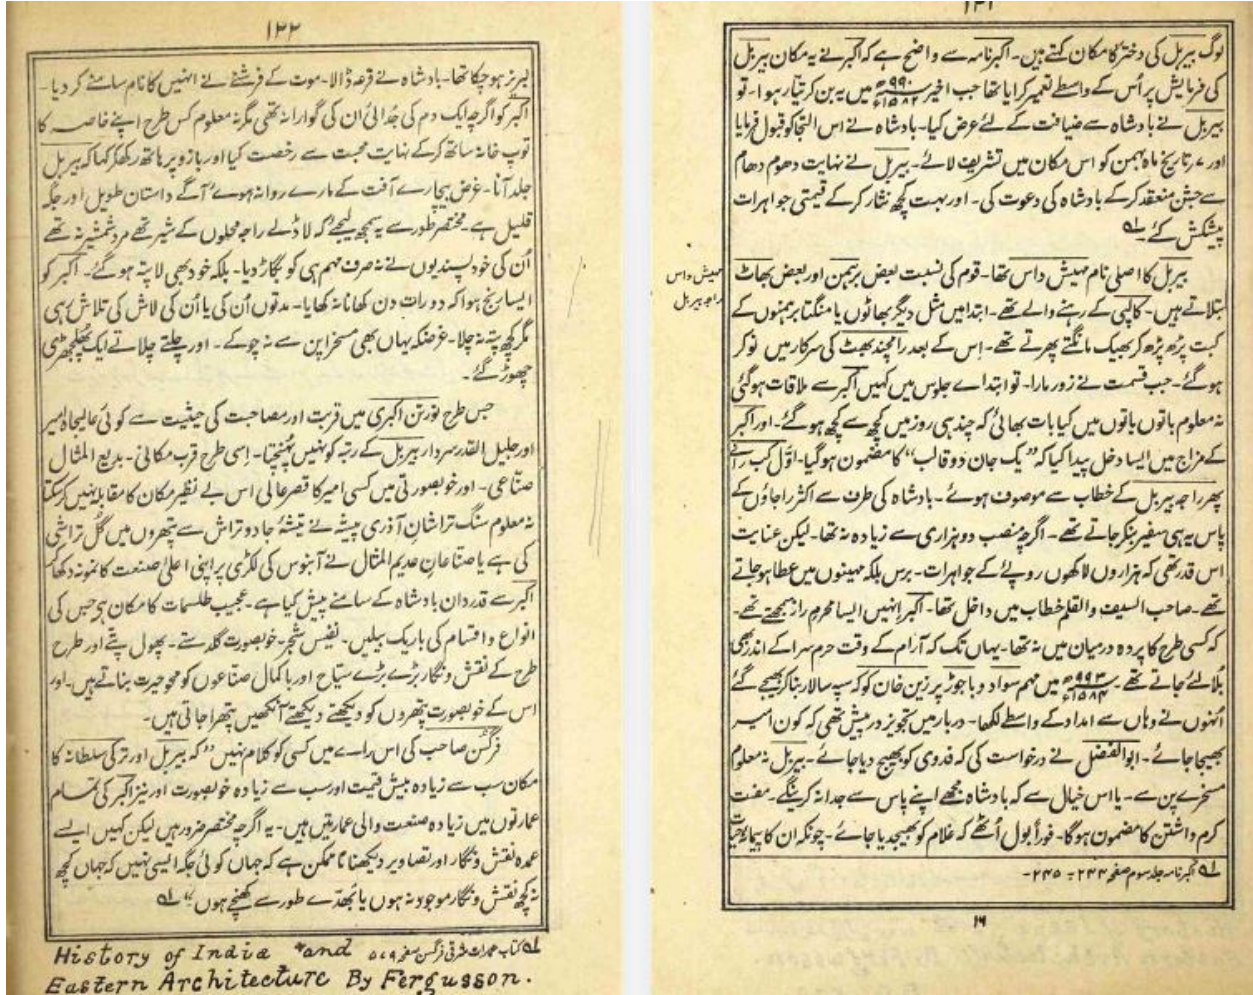 ۱۲۱
لوگ بیربل کی دختر کا مکان کہتے ہیں۔ اکبرنامہ سے واضح ہے کہ اکبر نے یہ مکان بیربل
کی فرمایش پر اُس کے واسطے تعمیر کرایا تھا جب اخیر ۹۹۰ھ ۱۵۸۲ء میں یہ بن کر تیار ہوا۔ تو
بیربل نے بادشاہ سے ضیافت کے لئے عرض کیا۔ بادشاہ نے اس التجا کو قبول فرمایا
اور ۷ تاریخ ماہ بہمن کو اس مکان میں تشریف لائے۔ بیربل نے نہایت دھوم دھام
سے جشن منعقد کرکے بادشاہ کی دعوت کی۔ اور بہت کچھ نثار کرکے قیمتی جواہرات
پیشکش کئے۔ لہ
مہیش داس
راجہ بیربل
بیربل کا اصلی نام مہیش داس تھا۔ قوم کی نسبت بعض برہمن اور بعض بھاٹ
بتلاتے ہیں۔ کالپی کے رہنے والے تھے۔ ابتدا میں مثل دیگر بھاٹوں یا منگتا برہمنوں کے
کبت پڑھ پڑھ کر بھیک مانگتے پھرتے تھے۔ اس کے بعد رامچند بھٹ کی سرکار میں نوکر
ہوگئے۔ جب قسمت نے زور مارا۔ تو ابتداے جلوس میں کہیں اکبر سے ملاقات ہوگئی
نہ معلوم باتوں باتوں میں کیا بات بھائی کہ چند ہی روز میں کچھ سے کچھ ہوگئے۔ اور اکبر
کے مزاج میں ایسا دخل پیدا کیا کہ "یک جان دو قالب" کا مضمون ہوگیا۔ اوّل کب رائے
پھر راجہ بیربل کے خطاب سے موصوف ہوئے۔ بادشاہ کی طرف سے اکثر راجاؤں کے
پاس یہ ہی سفیر بنکر جاتے تھے۔ اگرچہ منصب دو ہزاری سے زیادہ نہ تھا۔ لیکن عنایت
اس قدر تھی کہ ہزاروں لاکھوں روپئے کے جواہرات۔ برس بلکہ مہینوں میں عطا ہوجاتے
تھے۔ صاحب السیف والقلم خطاب میں داخل تھا۔ اکبر انہیں ایسا محرم راز سمجھتے تھے۔
کہ کسی طرح کا پردہ درمیان میں نہ تھا۔ یہاں تک کہ آرام کے وقت حرم سرا کے اندر بھی
بُلائے جاتے تھے۔ ۹۹۳ھ میں مہم سواد و باجوڑ پر زین خان کوکہ سپہ سالار بنا کر بھیجے گئے
اُنہوں نے وہاں سے امداد کے واسطے لکھا۔ دربار میں تجویز درپیش تھی کہ کون امیر
بھیجا جائے۔ ابوالفضل نے درخواست کی کہ فدوی کو بھیج دیا جائے۔ بیربل نہ معلوم
مسخرے پن سے۔ یا اس خیال سے کہ بادشاہ مجھے اپنے پاس سے جدا نہ کرینگے۔ مفت
کرم داشتن کا مضمون ہوگا۔ فوراً بول اُٹھے کہ غلام کو بھیجدیا جائے۔ چونکہ ان کا پیمانۂ حیات
لہ اکبرنامہ جلد سوم صفحہ ۲۴۴ - ۲۴۵۔
۱۶
۱۲۲
لبریز ہوچکا تھا۔ بادشاہ نے قرعہ ڈالا۔ موت کے فرشتے نے انہیں کا نام سامنے کردیا۔
اکبر کو اگرچہ ایک دم کی جُدائی اُن کی گوارا نہ تھی مگر نہ معلوم کس طرح اپنے خاصہ کا
توپ خانہ ساتھ کرکے نہایت محبت سے رخصت کیا اور بازو پر ہاتھ رکھکر کہا کہ بیربل
جلد آنا۔ غرض بیچارے آفت کے مارے روانہ ہوے آگے داستان طویل اور جگہ
قلیل ہے۔ مختصر طور سے یہ سمجھ لیجئے کہ لاڈلے راجہ محلوں کے شیر تھے مرد شمشیر نہ تھے
اُن کی خود پسندیوں نے نہ صرف مہم ہی کو بگاڑ دیا۔ بلکہ خود بھی لاپتہ ہوگئے۔ اکبر کو
ایسا رنج ہوا کہ دو رات دن کھانا نہ کھایا۔ مدتوں اُن کی یا اُن کی لاش کی تلاش رہی
مگر کچھ پتہ نہ چلا۔ غرضکہ یہاں بھی مسخراپن سے نہ چوکے۔ اور چلتے چلاتے ایک پُھلجھڑی
چھوڑ گئے۔
جس طرح نورتن اکبری میں قربت اور مصاحبت کی حیثیت سے کوئی عالیجاہ امیر
اور جلیل القدر سردار بیربل کے رتبہ کو نہیں پُہنچتا۔ اِسی طرح قرب مکانی۔ بدیع المثال
صنّاعی۔ اور خوبصورتی میں کسی امیر کا قصر عالی اس بے نظیر مکان کا مقابلہ نہیں کرسکتا
نہ معلوم سنگ تراشان آذری پیشہ نے تیشۂ جادو تراش سے پتھروں میں گُل تراشی
کی ہے یا صنّاعانِ عدیم المثال نے آبنوس کی لکڑی پر اپنی اعلیٰ صنعت کا نمونہ دکھاکر
اکبر سے قدردان بادشاہ کے سامنے پیش کیا ہے۔ عجیب طلسمات کا مکان ہی جس کی
انواع و اقسام کی باریک بیلیں۔ نفیس شجر۔ خوبصورت گلدستے۔ پھول پتّے اور طرح
طرح کے نقش ونگار بڑے بڑے سیّاح اور باکمال صنّاعوں کو محوِ حیرت بناتے ہیں۔ اور
اس کے خوبصورت پتھروں کو دیکھتے دیکھتے آنکھیں پتھرا جاتی ہیں۔
فرگسن صاحب کی اس راے میں کسی کو کلام نہیں "کہ بیربل اور ترکی سلطانہ کا
مکان سب سے زیادہ بیش قیمت اور سب سے زیادہ خوبصورت اور نیز اکبر کی تمام
عمارتوں میں زیادہ صنعت والی عمارتیں ہیں۔ یہ اگرچہ مختصر ضرور ہیں لیکن کہیں ایسے
عمدہ نقش ونگار اور تصاویر دیکھنا ناممکن ہے کہ جہاں کوئی جگہ ایسی نہیں کہ جہاں کچھ
نہ کچھ نقش ونگار موجود نہ ہوں یا بُھدّے طور سے کھنچے ہوں"۔ لہ
لہ کتاب عمارات مشرقی فرگسن صفحہ ۵۷۹ History of India and
Eastern Architecture By Fergusson.